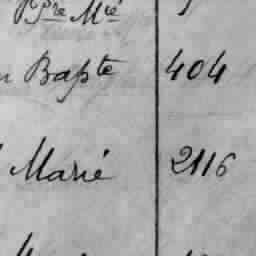 Pre Mié
Bapte 404
Marié 2116